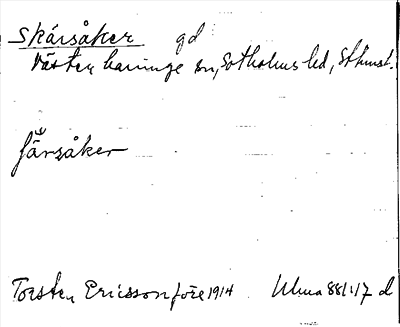 Skårsåker gd
Västerhaninge sn, Sotholms hd, Sthmsl.
fä̆rsåker
Torsten Ericsson före 1914 Uluma 88:1:17 d